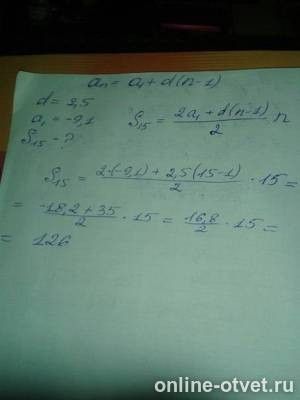 aₙ = a₁ + d(n-1)
d = 2,5
a₁ = -9,1
S₁₅ = (2a₁ + d(n-1))/2 · n
S₁₅ - ?
S₁₅ = (2·(-9,1) + 2,5(15-1))/2 · 15 =
= (-18,2 + 35)/2 · 15 = 16,8/2 · 15 =
= 126
online-otvet.ru